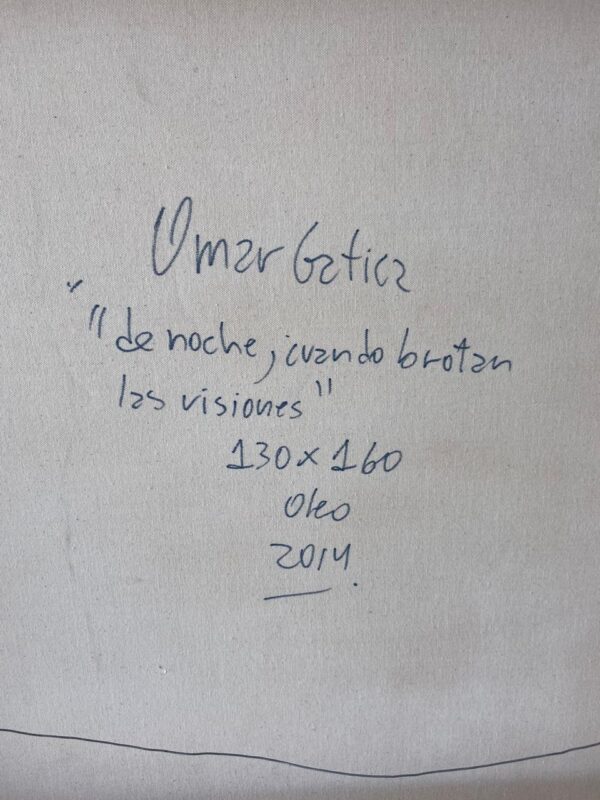 Omar Gatica
"de noche, cuando brotan
las visiones"
130 x 160
Oleo
2014.